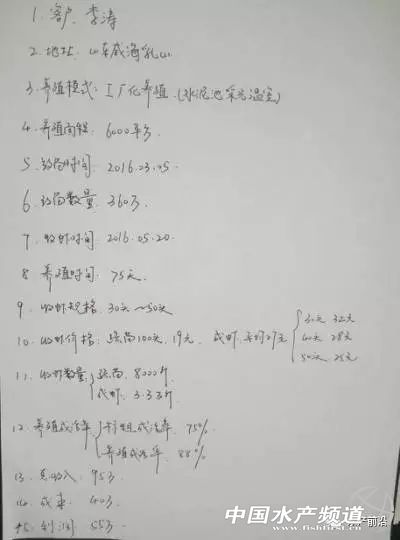 1. 客户: 李涛
2. 地址: 山东威海乳山
3. 养殖模式: 工厂化养殖 (水泥池采光温室)
4. 养殖面积: 6000平方
5. 放苗时间: 2016.03.05
6. 放苗数量: 360万
7. 收虾时间: 2016.05.20
8. 养殖时间: 75天
9. 收虾规格: 30头~50头
10. 收虾价格: 标苗100头, 19元, 成虾: 平均27元 { 30头 32元
40头 28元
50头 25元
11. 收虾数量 { 标苗: 8000斤
成虾: 3.3万斤
12. 养殖成活率 { 标粗成活率: 75%
养殖成活率: 88%
13. 总收入: 95万
14. 成本: 40万
15. 利润: 55万
中国水产频道
www.fishfirst.cn
水产前沿